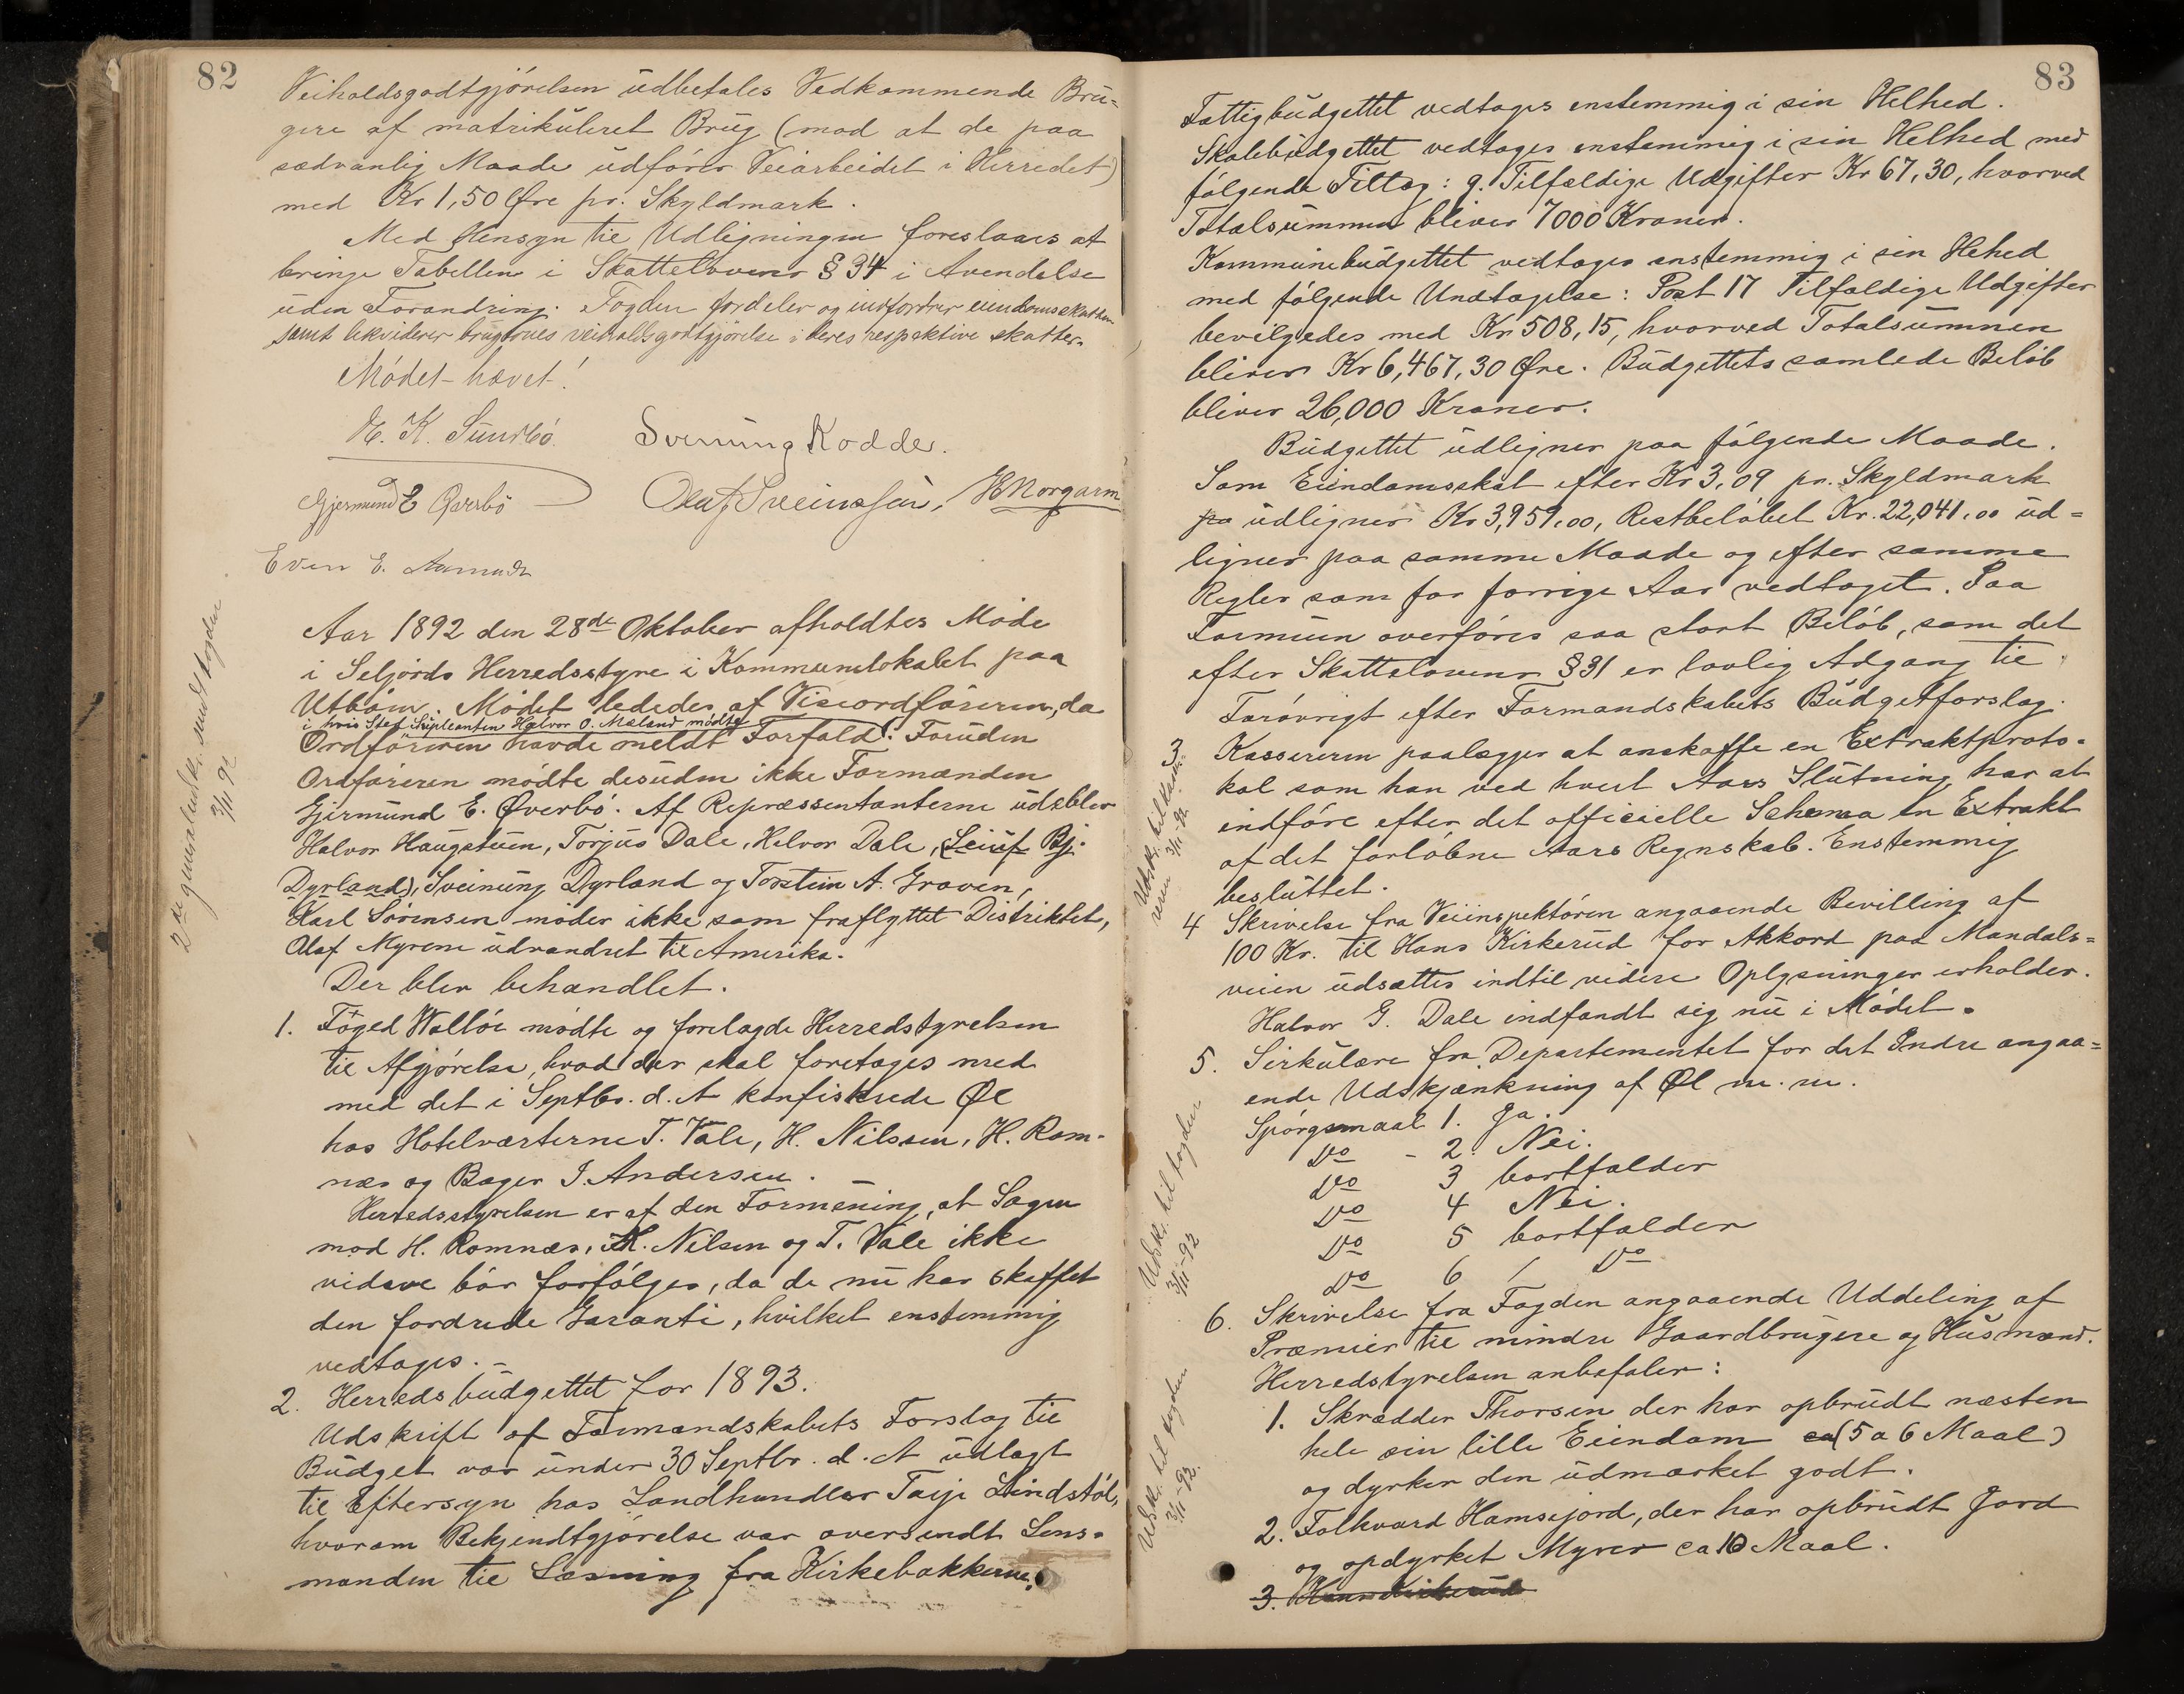 82
Veiholdsgodtgjórelsen údbetales Vedkommende Brú=
gere af matrikúleret Brúg (mod at de paa
sædvanlig Maade údfórer Veiarbeidet i Herredet)
med Kr 1,50 Øre pr. Skyldmark.
Med Hensyn til Udligningen foreslaaes at
bringe Tabellen i Skattelovens § 34 i Anvendelse
úden Forandring. Fogden fordeler og indfordrer eiendomsskatten
samt likviderer brugernes veiholdsgodtgjörelse i deres respektive skatter.
Módet hævet!
E. K. Sundbó. Sveinung Kodde.
Gjermund E Øverbö Olaf Sveinssøn, H Norgarn
Even E. Aamodt
2de genpartudskr. sendt fogden
3/11 92
Aar 1892 den 28de Oktober afholdtes Móde
i Seljords Herredsstyre i Kommunelokalet paa
Utbóen. Módet lededes af Viceordfóreren, da
i hvis Sted Supleanten Halvor O. Mæland mødte
Ordfóreren havde meldt Forfald. Forúden
Ordfóreren módte desúden ikke Formanden
Gjermúnd E. Øverbó. Af Repræssentanterne údeblev
Halvor Haúgstúen, Torjús Dale, Halvor Dale, (Leiúf Bj.
Dyrland), Sveinúng Dyrland og Torstein A. Graven,
Karl Sórensen móder ikke som fraflyttet Distriktet,
Olaf Myrene údvandret til Amerika.
Der blev behandlet.
1. Foged Wallóe módte og forelagde Herredstyrelsen
til Afgjórelse, hvad der skal foretages med
med det i Septbr. d. A konfiskerede Øl
hos Hotelværterne T. Vale, H. Nilssen, H. Rom-
næs og Bager I. Andersen.
Herredsstyrelsen er af den Formening, at Sagen
mod H. Romnæs, H. Nilsen og T. Vale ikke
videre bór forfólges, da de nú har skaffet
den fordrede Garanti, hvilket enstemmig
vedtages. –
2. Herredsbúdgettet for 1893.
Udskrift af Formandskabets Forslag til
Búdget var únder 30 Septbr. d. A údlagt
til Eftersyn hos Landhandler Taije Lindstól,
hvorom Bekjendtgjórelse var oversendt Lens-
manden til Læsning fra Kirkebakkerne.
83
Fattigbúdgettet vedtages enstemmig i sin Helhed.
Skolebúdgettet vedtages enstemmig i sin Helhed med
fólgende Tillæg: 9. Tilfældige Udgifter Kr 67,30, hvorved
Totalsúmmen bliver 7000 Kroner.
Kommúnebúdgettet vedtages enstemmig i sin Hehed
med fólgende Undtagelse: Post 17 Tilfældige Udgifter
bevilgedes med Kr 508,15, hvorved Totalsúmmen
bliver Kr 6,467,30 Øre. Búdgettets samlede Beløb
bliver 26,000 Kroner.
Búdgettet údlignes paa fólgende Maade.
Som Eiendomsskat efter Kr 3,09 pr. Skyldmark
pr údlignes Kr 3,959,00, Restbelóbet Kr. 22,041,00 úd=
lignes paa samme Maade og efter samme
Regler som for forrige Aar vedtaget. Paa
Formúen overfóres saa stort Belób, som det
efter Skattelovens § 31 er lovlig Adgang til.
Foróvrigt efter Formandskabets Búdgetforslag.
Udskr. til Kasse-
reren 3/11-92.
3 Kassereren paalægges at anskaffe en Extraktproto-
kol som han ved hvert Aars Slútning har at
indfóre efter det officielle Schema en Extrakt
af det forlóbne Aars Regnskab. Enstemmig
beslúttet.
4 Skrivelse fra Veiinspektóren angaaende Bevilling af
100 Kr. til Hans Kirkerúd for Akkord paa Mandals=
veien údsættes indtil videre Oplysninger erholdes.
Halvor G. Dale indfandt sig nú i Módet.
Udskr. til fogden
3/11-92
5. Sirkúlære fra Departementet for det Indre angaa=
ende Udskjænkning af Øl m. m.
Spórgsmaal 1. Ja.
Do - 2. Nei.
Do 3 bortfalder
Do 4 Nei.
Do 5 bortfalder
Do 6 / Do
Udskr. til fogden
3/11-92.
6. Skrivelse fra Fogden angaaende Uddeling af
Præmier til mindre Gaardbrúgere og Húsmænd.
Herredstyrelsen anbefaler:
1. Skrædder Thorsen der har opbrúdt næsten
hele sin lille Eiendom ca (5 a 6 Maal)
og dyrker den údmærket godt.
2. Folkvard Hamsejord, der har opbrúdt Jord
og opdyrket Myrer ca 10 Maal.
3. Hans Kirkerúd